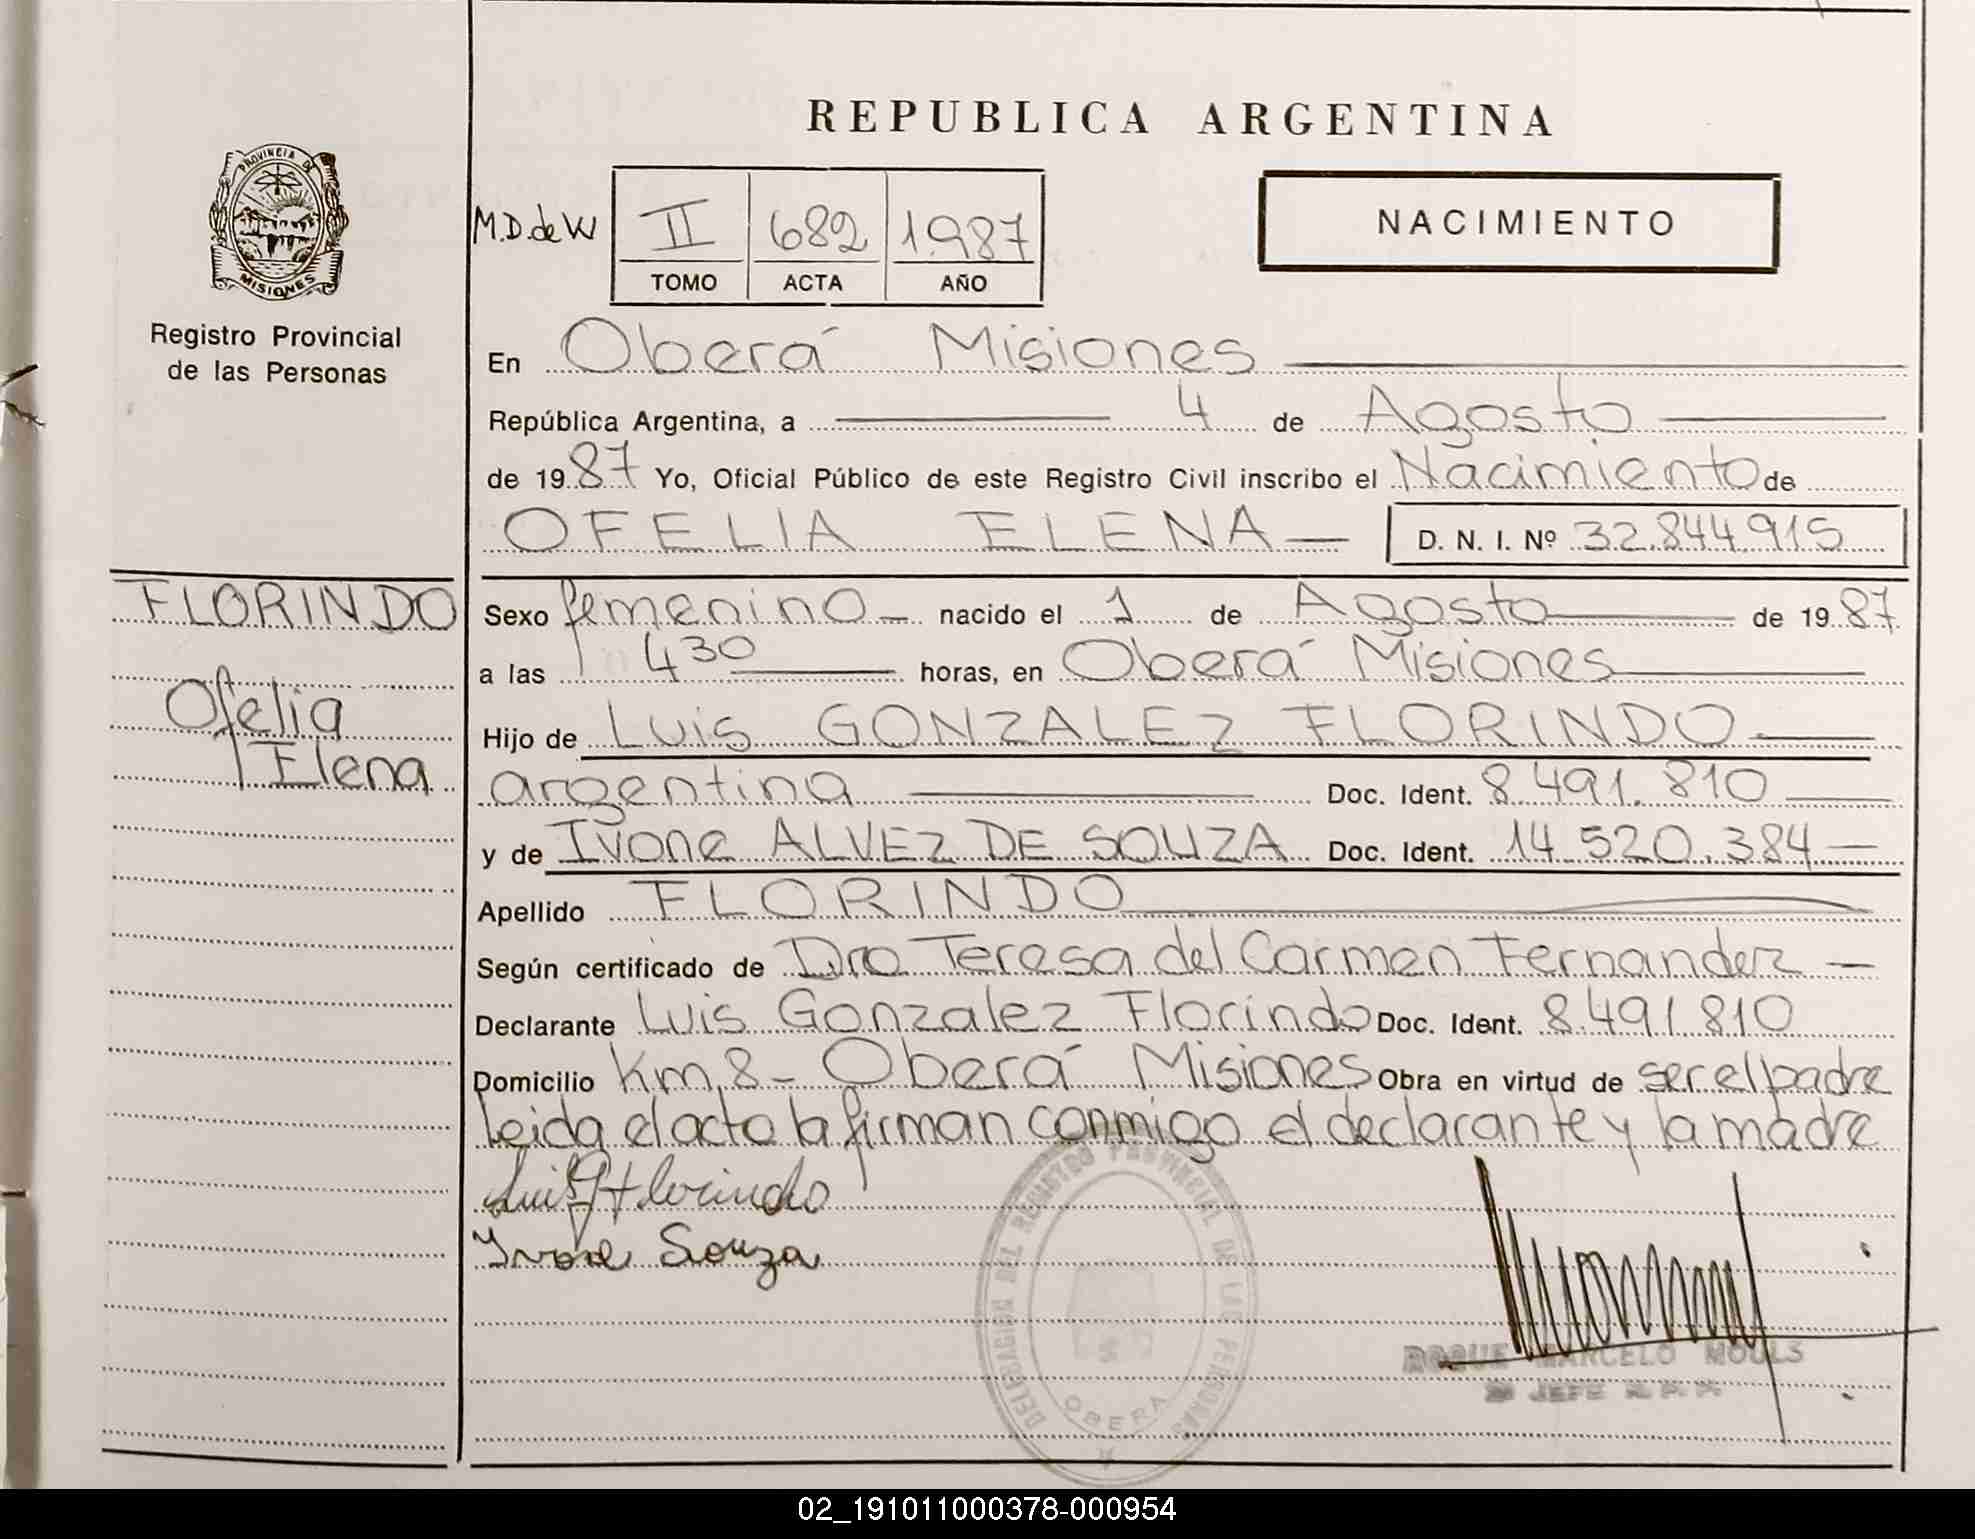 REPUBLICA ARGENTINA
PROVINCIA DE MISIONES
Registro Provincial
de las Personas
M.D. de W
II 682 1.987
TOMO ACTA AÑO
NACIMIENTO
En Oberá Misiones
República Argentina, a 4 de Agosto
de 1987 Yo, Oficial Público de este Registro Civil inscribo el Nacimiento de
OFELIA ELENA D. N. I. Nº 32.844.915
FLORINDO
Ofelia
Elena
Sexo femenino nacido el 1 de Agosto de 1987
a las 430 horas, en Oberá Misiones
Hijo de Luis GONZALEZ FLORINDO
argentina Doc. Ident. 8.491.810
y de Ivone ALVEZ DE SOUZA Doc. Ident. 14.520.384
Apellido FLORINDO
Según certificado de Dra Teresa del Carmen Fernandez
Declarante Luis Gonzalez Florindo Doc. Ident. 8.491.810
Domicilio Km 8 - Oberá Misiones Obra en virtud de ser el padre
Leida el acto la firman conmigo el declarante y la madre
Luis G Florindo
Ivone Souza
DELEGACION DEL REGISTRO PROVINCIAL DE LAS PERSONAS
OBERA
ROQUE MARCELO MOULS
JEFE R.P.P.
02_191011000378-000954